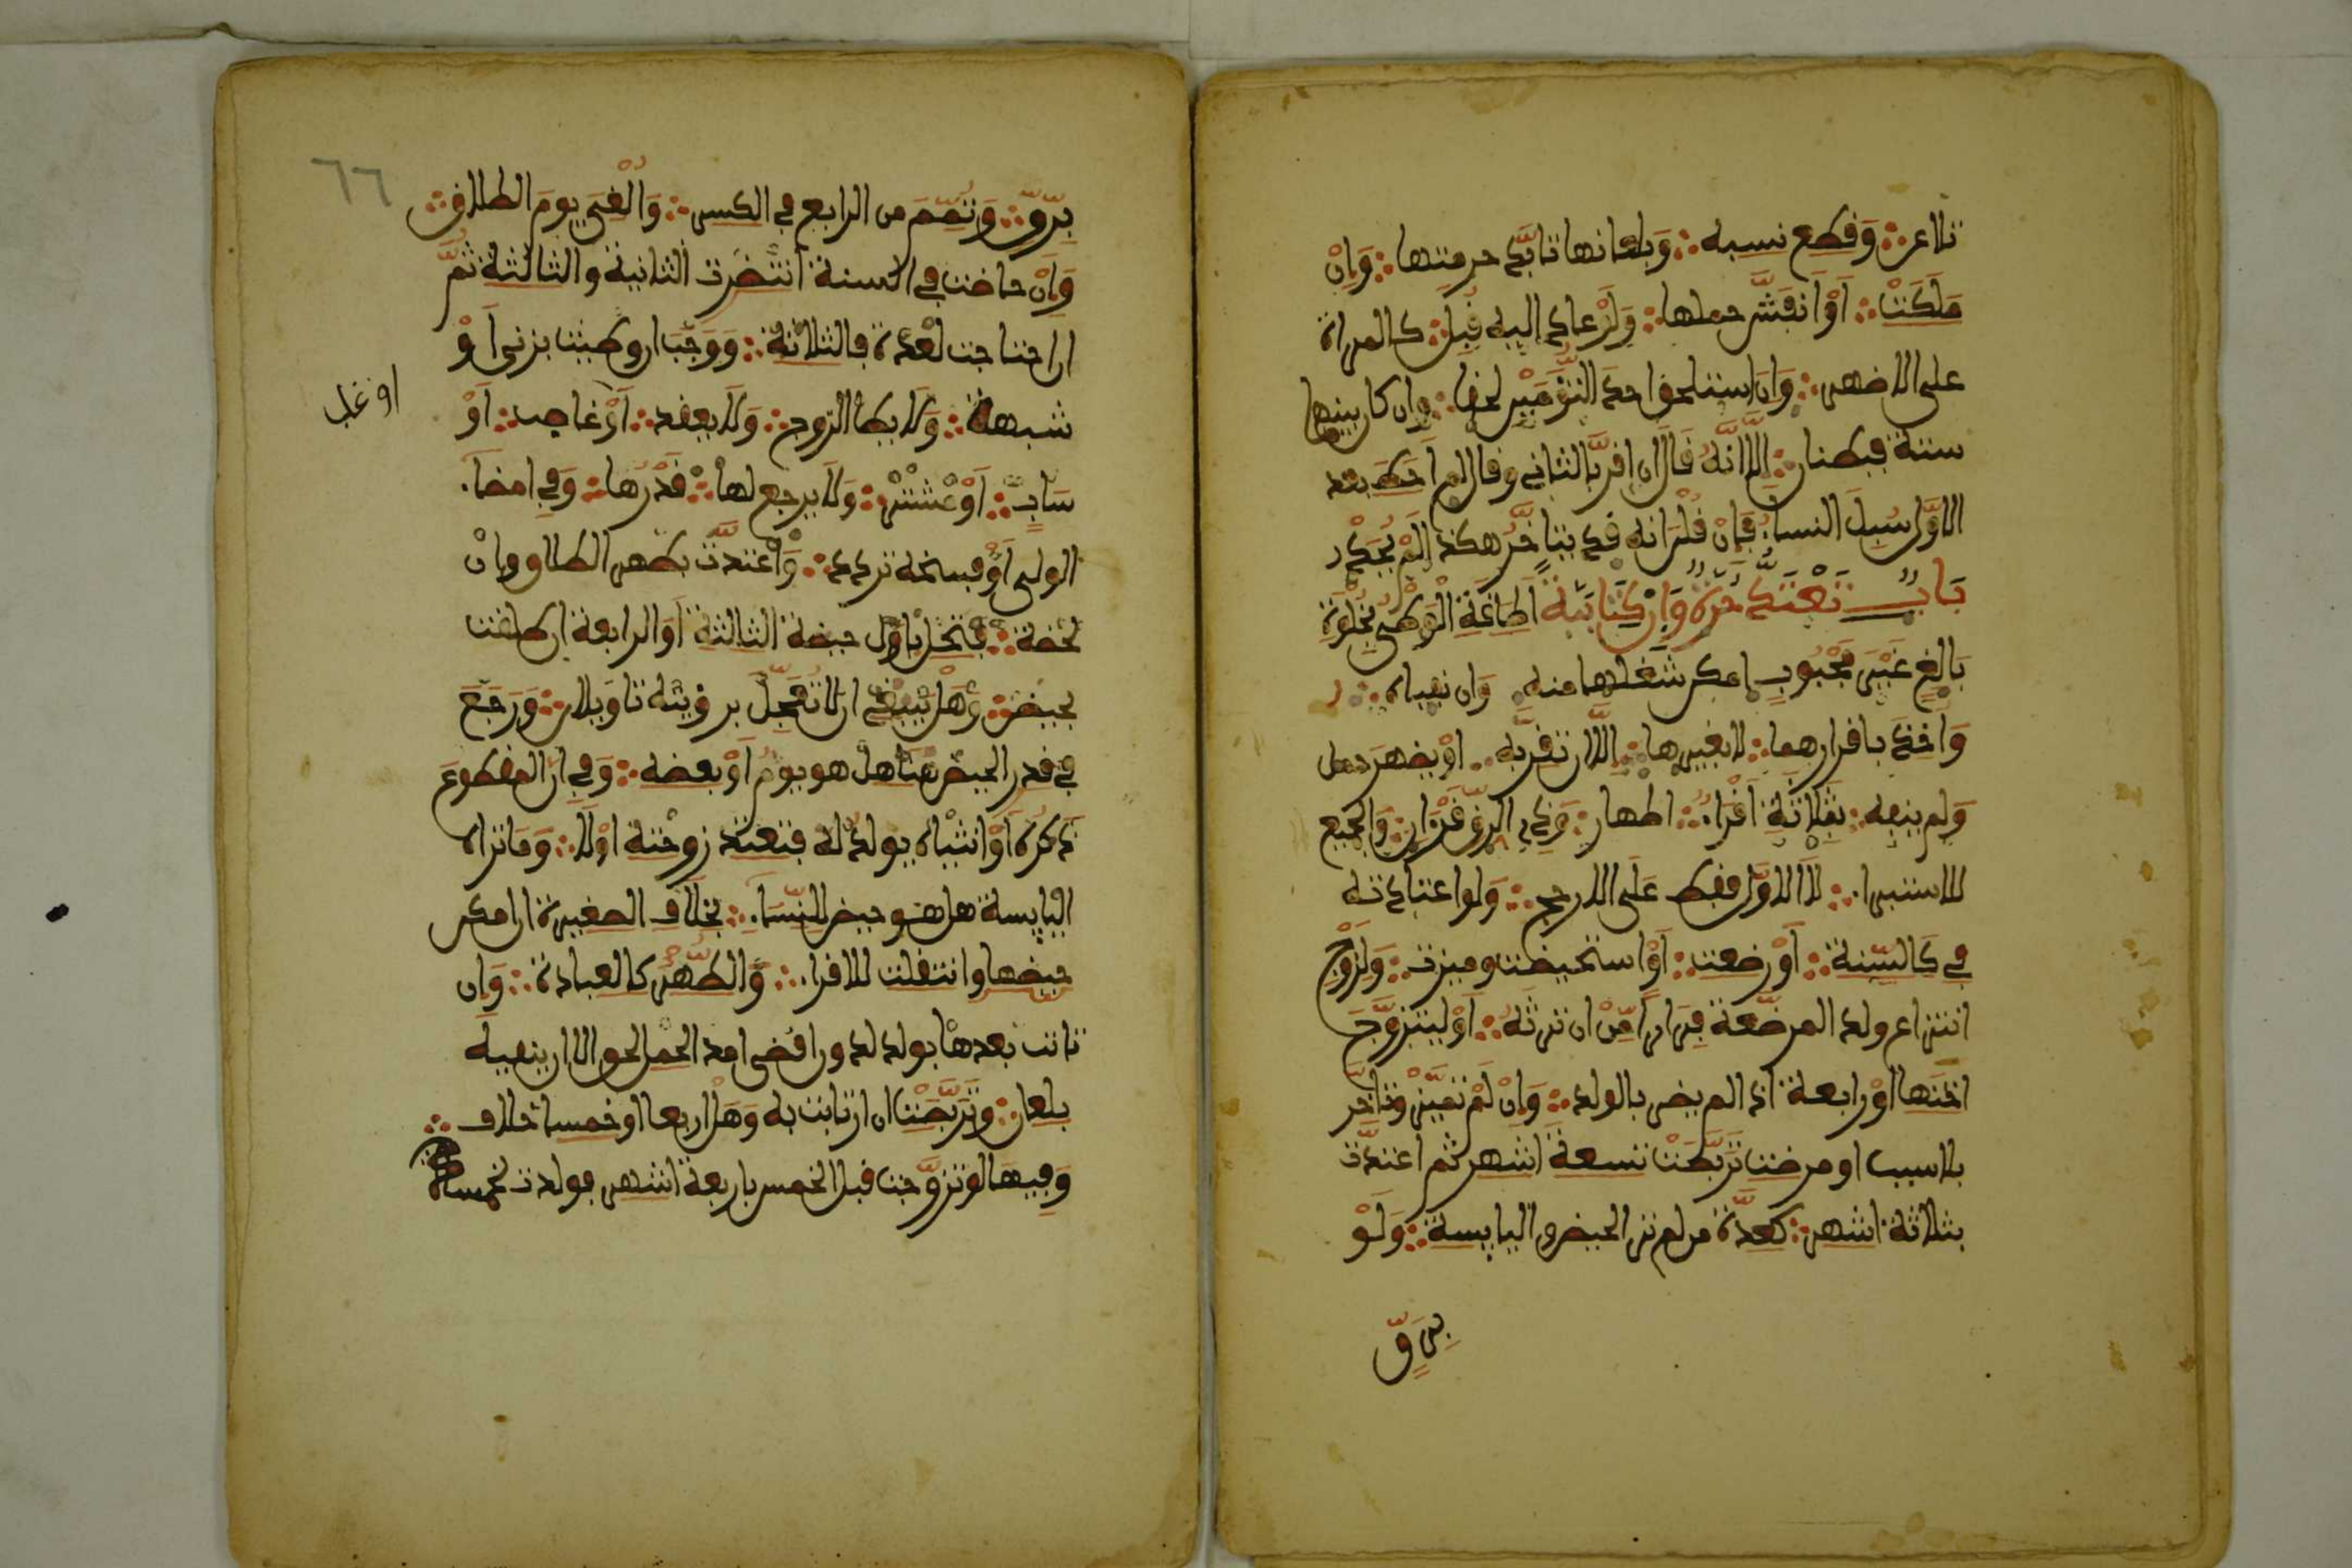 تلاعن وقطع نسبه وبلعانها تابد حرمتها وان
ملكت او انفش حملها ولو عاد اليه قبل كالمراة
على الاضهر وان استلحق احد التومين لحقا وان كان بينهما
ستة فبطنان الا انه قال ان اقر بالثاني وقال لم اطا بعد
الاول سيل النسا فان قلن انه قد يتاخر هكذ الم يحد
باب تعتد حرة وان كتابية اطاقة الوطي بخلوة
بالغ غير مجبوب امكن شغلها منه وان نفياه
واخذ باقرارهما لا بغيرها الا ان تقر به او يضهر حمل
ولم ينفه بثلاثة اقرا اطهار وذي الرق قران والجميع
للاستبرا لا الاول فقط على الارجح ولو اعتادته
في كالسنة او رضعت او استحيضت وميزت ولزوج
انتزاع ولد المرضعة فرارا من ان ترثه او ليتزوج
اختها او رابعة اذا لم يضر بالولد وان لم تميز وتاخر
بلا سبب او مرضت تربصت تسعة اشهر ثم اعتدت
بثلاثة اشهر كعدة من لم تر الحيض واليايسة ولو
برق
٦٦
برق وتمم من الرابع في الكسر والغي يوم الطلاق
وان حاضت في السنة انتضرت الثانية والثالثة ثم
ان احتاجت لعدة فالثلاثة ووجب ان وطيت بزنى او
شبهة ولا يطا الزوج ولا يعقد او غاصب او
او غلب
ساب او مشتر ولا يرجع لها قدرها وفي امضا
الولي او فسخه تردد واعتدت بطهر الطلاق وان
لحضة فتحل باول حيضة الثالثة او الرابعة ان طلقت
بحيض وهل ينبغي ان لا تعجل برويته تاويلان ورجع
في قدر الحيض هنا هل هو يوم او بعضه وفي ان المقطوع
ذكره او انثياه يولد له فتعتد زوجته او لا وما تراه
اليايسة هل هو حيض للنسا بخلاف الصغيرة ان امكن
حيضها وانتقلت للاقرا والطهر كالعبادة وان
اتت بعدها بولد لدون اقصى امد الحمل لحق الا ان ينفيه
بلعان وتربصت ان ارتابت به وهل اربعا او خمسا خلاف
وفيها لو تزوجت قبل الخمس باربعة اشهر فولدت لخمسة